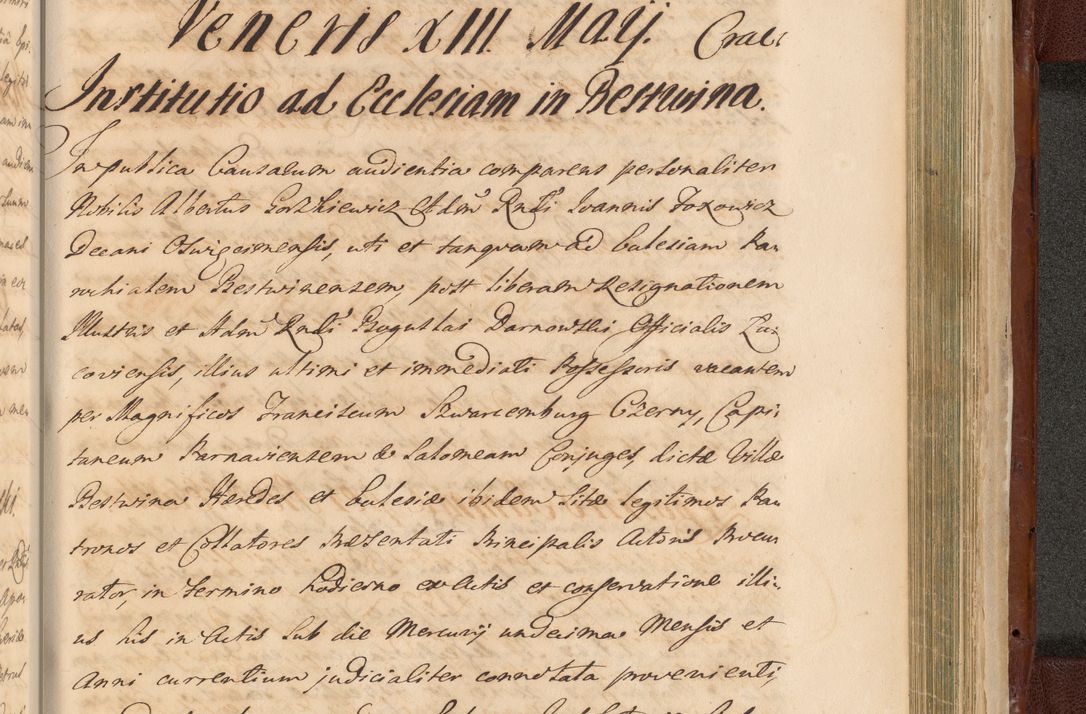 Veneris XIII Maij. Crac:
Institutio ad Ecclesiam in Bestwina.
In publica Causarum audientia comparens personaliter
Nobilis Albertus Gorzkiewicz Adm. Rndi Joannis Foxowicz
Decani Oswięcimensis, uti et tanquam ad Ecclesiam Pa-
rochialem Bestwinensem, post liberam Resignationem
Illustris et Adm Rndi Boguslai Darnowski Officialis Cra-
coviensis, illius ultimi et immediati Possessoris vacantem
per Magnificos Franciscum Szwarcemburg Czerny, Capi-
taneum Parnaviensem & Salomeam Conjuges, dictæ Villæ
Bestwina Hæredes et Ecclesiæ ibidem Sitæ legitimos Pa-
tronos et Collatores Præsentati Principalis Actoris Procu-
rator, in termino hodierno ex Actis et conservatione illi-
us his in Actis Sub die Mercurij undecima Mensis et
Anni currentium judicialiter connotata provenienti,